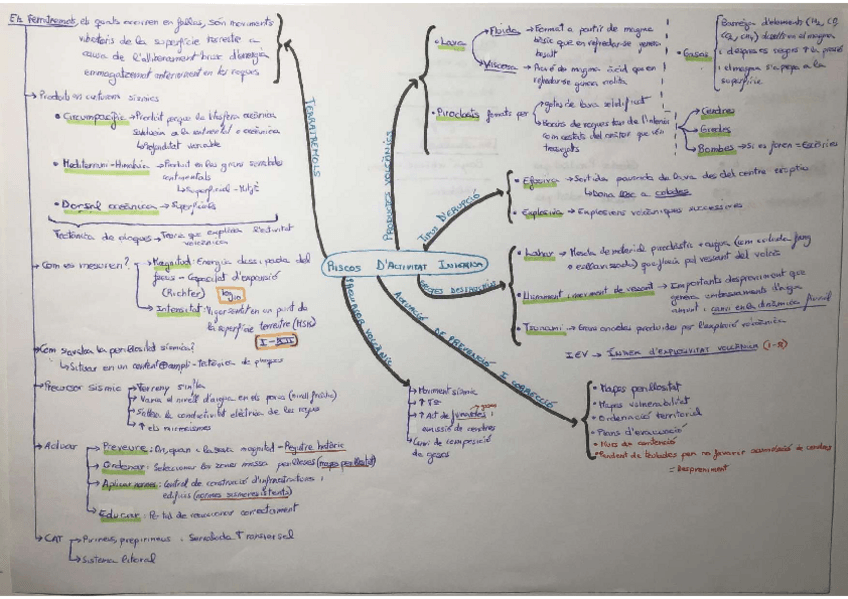 Els Terratrèmols, els quals ocorren en falles, són moviments
vibratoris de la superfície terrestre a
causa de l'alliberament brusc d'energia
emmagatzemat anteriorment en les roques
→ Produïts en cinturons sísmics
• Circumpacífic → Produït perquè la litosfera oceànica
subdueix a la continental o oceànica
↳ Profunditat variable
• Mediterrani-Himàlaia → Produït en les grans serralades
continentals
↳ Superficial - Mitjà
• Dorsal oceànica → Superficials
Tectònica de plaques → Teoria que explica l'activitat
volcànica
→ Com es mesuren?
→ Magnitud: Energia alliberada del
focus - Capacitat d'expansió
(Richter) log 10
→ Intensitat: Vigor sentit en un punt de
la superfície terrestre (MSK)
I - XII
→ Com s'analitza la perillositat sísmica?
↳ Situar en un context ampli - tectònica de plaques
→ Precursor sísmic
→ Terreny s'infla
→ Varia el nivell d'aigua en els pous (nivell freàtic)
→ Saltea la conductivitat elèctrica de les roques
→ ↑ els microsismes
→ Actuar
→ Preveure: On, quan i la seva magnitud - Registre històric
→ Ordenar: Seleccionar les zones massa perilloses (mapes perillositat)
→ Aplicar normes: Control de construcció d'infraestructures i
edificis (normes sismoresistents)
→ Educar: Per tal de reaccionar correctament
→ CAT
→ Pirineus, prepirineus i Serralada Transversal
→ Sistema litoral
TERRATRÈMOLS
RISCOS D'ACTIVITAT INTERNA
PRODUCTES VOLCÀNICS
• Lava
Fluida → Format a partir de magma
bàsic que en refredar-se genera
basalt
Viscosa → Prové de magma àcid que en
refredar-se genera riolita
• Piroclasts formats per
gotes de lava solidificat
Trossos de roques tant de l'interior
com costats del cràter que són
trencats
→ Cendres
→ Gredes
→ Bombes → Si es foren = Escòries
• Gasos
Barreja d'elements (H₂, CO,
CO₂, CH₄) dissolts en el magma
i després vegades ↑ la pressió
i el magma s'apropa a la
superfície
TIPUS D'ERUPCIÓ
• Efusiva → Sortida pausada de lava des del centre eruptiu
↳ Dona lloc a colades
• Explosiva → Explosions volcàniques successives
EFECTES DESTRUCTIUS
• Lahar → Mescla de material piroclàstic + aigua (com colada fang
o esllavissada) que flueix pel vessant del volcà
• Lliscament i moviment de vessant → Importants despreniment que
genera embassaments d'aigua
amunt i canvi en la dinàmica fluvial
• Tsunami → Grans onades produïdes per l'explosió volcànica
IEV → ÍNDEX D'EXPLOSIVITAT VOLCÀNICA (1-8)
PRECURSOR VOLCÀNIC
→ Moviment sísmic
→ ↑ Tª
→ ↑ Act de fumaroles → gasos i
emissió de cendres
→ Canvi de composició
de gasos
ACTUACIÓ DE PREVENCIÓ I CORRECCIÓ
• Mapes perillositat
• Mapes vulnerabilitat
• Ordenació territorial
• Plans d'evacuació
• Murs de contenció
• Pendent de teulades per no favorir acumulació de cendres
= Despreniment